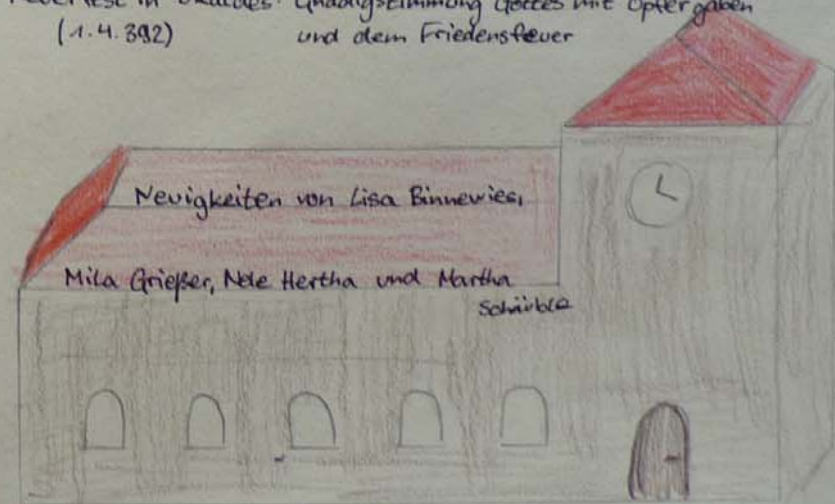 Feuerfest in Gnädigstimmung Gottes mit Opfergaben
(1.4.392) und dem Friedensfeuer
Neuigkeiten von Lisa Binnewies,
Mila Grießer, Nele Hertha und Martha
Schäuble